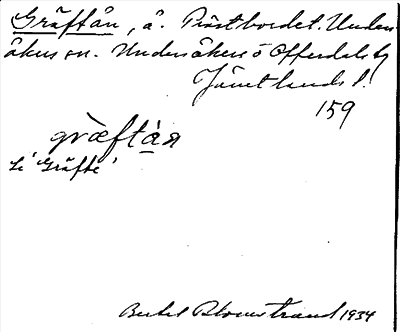 Gräftån, å. Prästbordet. Under-
åkers sn. Undersåkers o Offerdals tg
Jämtlands l.
159
græftan
Se 'Gräfte'
Bertil Blomstrand 1934